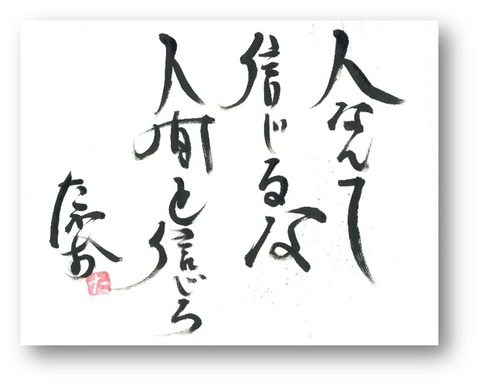 人なんて
信じるな
人間を信じろ
たかお
た